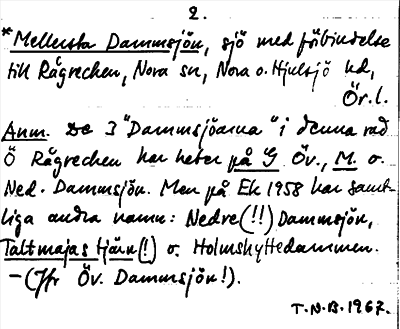 2.
*Mellersta Dammsjön, sjö med förbindelse
till Rågrecken, Nora sn, Nora o. Hjulsjö hd,
Ör. l.
Anm. De 3 "Dammsjöarna" i denna rad
Ö Rågrecken har heter på G Öv., M. o.
Ned. Dammsjön. Men på Ek 1958 har samt-
liga andra namn: Nedre (!!) Dammsjön,
Taltmajas tjärn (!) o. Holmshyttedammen.
– (Jfr Öv. Dammsjön!).
T.N.B. 1967.